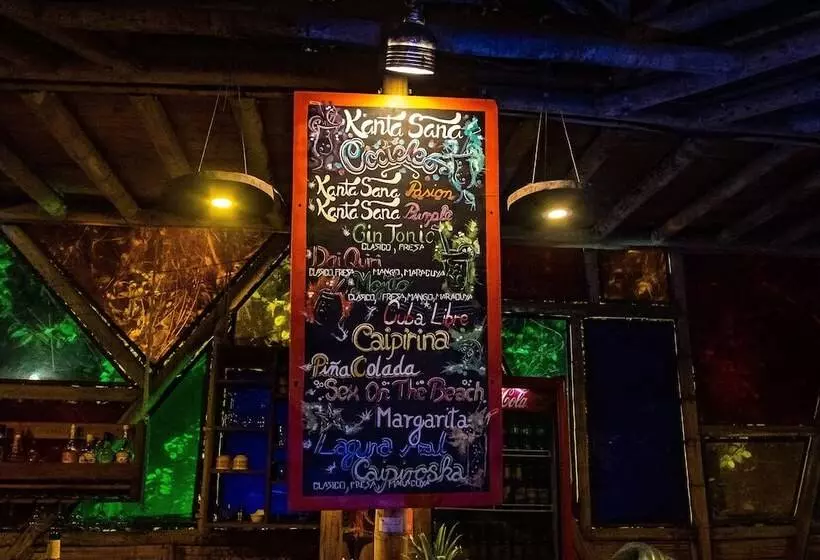 Kanta Sana
Coctele
Kanta Sana Pasion
Kanta Sana Purple
Gin Tonic
CLASICO, FRESA
Dai Quiri
CLASICO, FRESA, MANGO, MARACUYA
Mojito
CLASICO, FRESA, MANGO, MARACUYA
Cuba Libre
Caipirina
Piña Colada
Sex On The Beach
Margarita
Laguna Azul
Caipiroska
CLASICO, FRESA, MARACUYA
Cola